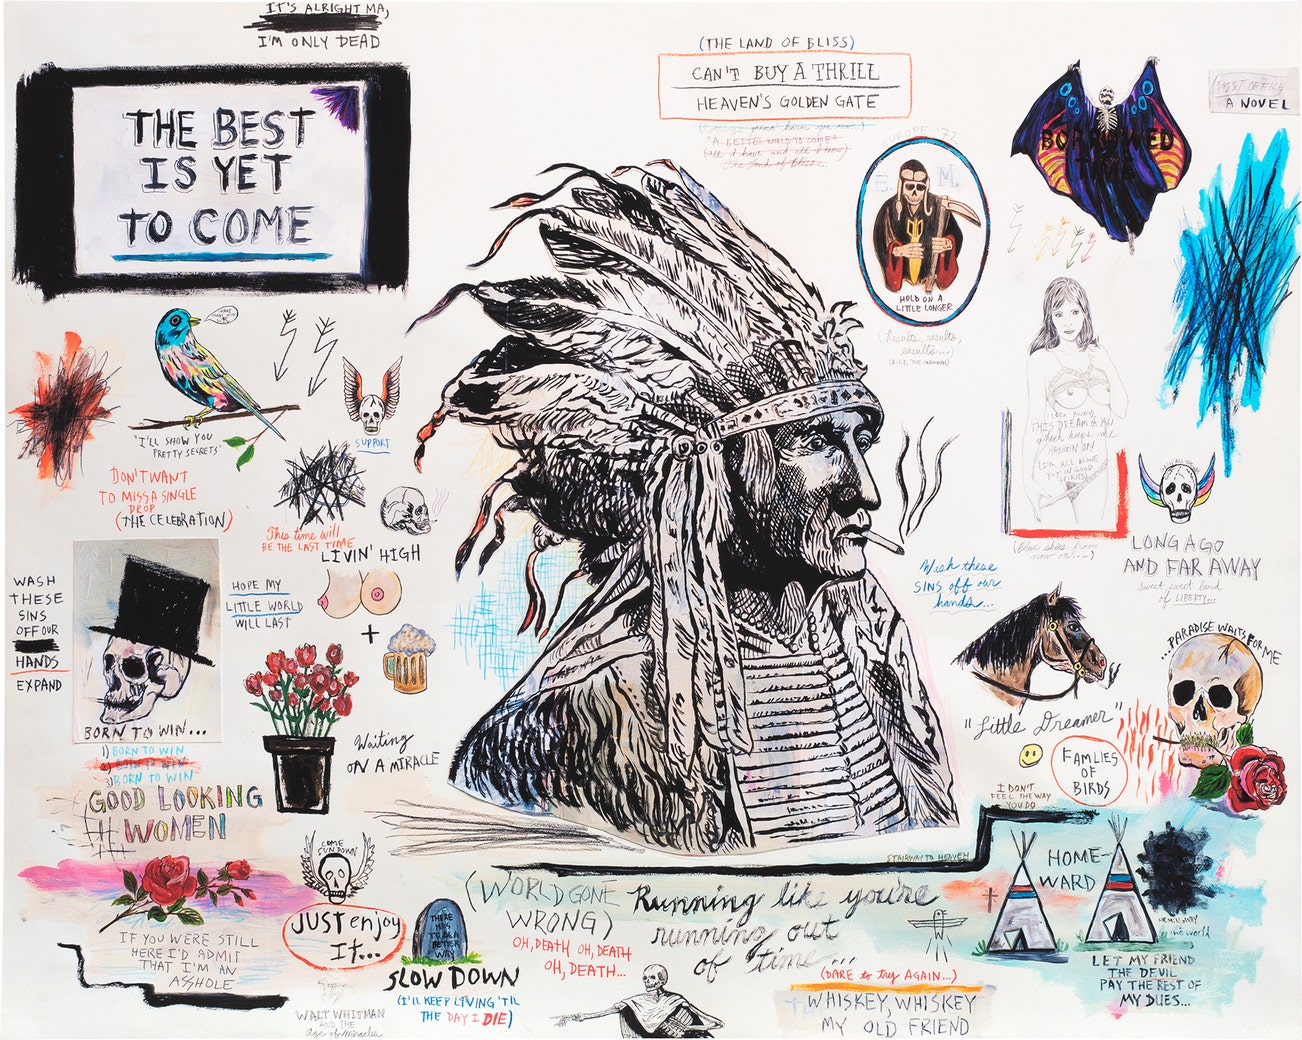 IT'S ALRIGHT MA,
I'M ONLY DEAD
THE BEST
IS YET
TO COME
(THE LAND OF BLISS)
CAN'T BUY A THRILL
HEAVEN'S GOLDEN GATE
A BETTER WORLD TO COME
(all I have and all I know)
The land of bliss...
EUROPE '72
E. M.
HOLD ON A
LITTLE LONGER
(Results, results,
results...)
BORROWED
TIME
POST OFFICE
A NOVEL
"I'LL SHOW YOU
PRETTY SECRETS"
SUPPORT
DON'T WANT
TO MISS A SINGLE
DROP
(THE CELEBRATION)
This time will
BE THE LAST TIME
LIVIN' HIGH
WASH
THESE
SINS
OFF OUR
HANDS
EXPAND
HOPE MY
LITTLE WORLD
WILL LAST
+
BORN TO WIN...
1) BORN TO WIN
2) BORN TO WIN
3) BORN TO WIN
GOOD LOOKING
WOMEN
Waiting
ON A MIRACLE
LOOK AWAY,
THIS DREAM OF YOU
which keeps me
HANGIN' ON
(I'M ALL ALONE
BUT IN GOOD
SPIRITS)
(Blue skies from
now on...)
LONG AGO
AND FAR AWAY
Sweet sweet land
of LIBERTY...
Wash these
SINS off our
hands...
...PARADISE WAITS FOR ME
"Little Dreamer"
FAMLIES
OF
BIRDS
I DON'T
FEEL THE WAY
YOU DO
STAIRWAY TO HEAVEN
HOME-
WARD
HEMINGWAY
the world
LET MY FRIEND
THE DEVIL
PAY THE REST OF
MY DUES...
COME
SUNDOWN
JUST enjoy
IT...
IF YOU WERE STILL
HERE I'D ADMIT
THAT I'M AN
ASSHOLE
THERE
HAS
TO BE A
BETTER
WAY
SLOW DOWN
(I'LL KEEP LIVING 'TIL
THE DAY I DIE)
WALT WHITMAN
AND THE
age of miracles
(WORLD GONE
WRONG)
OH, DEATH OH, DEATH
OH, DEATH...
Running like you're
running out
of time...
(DARE to try AGAIN...)
WHISKEY, WHISKEY
MY OLD FRIEND